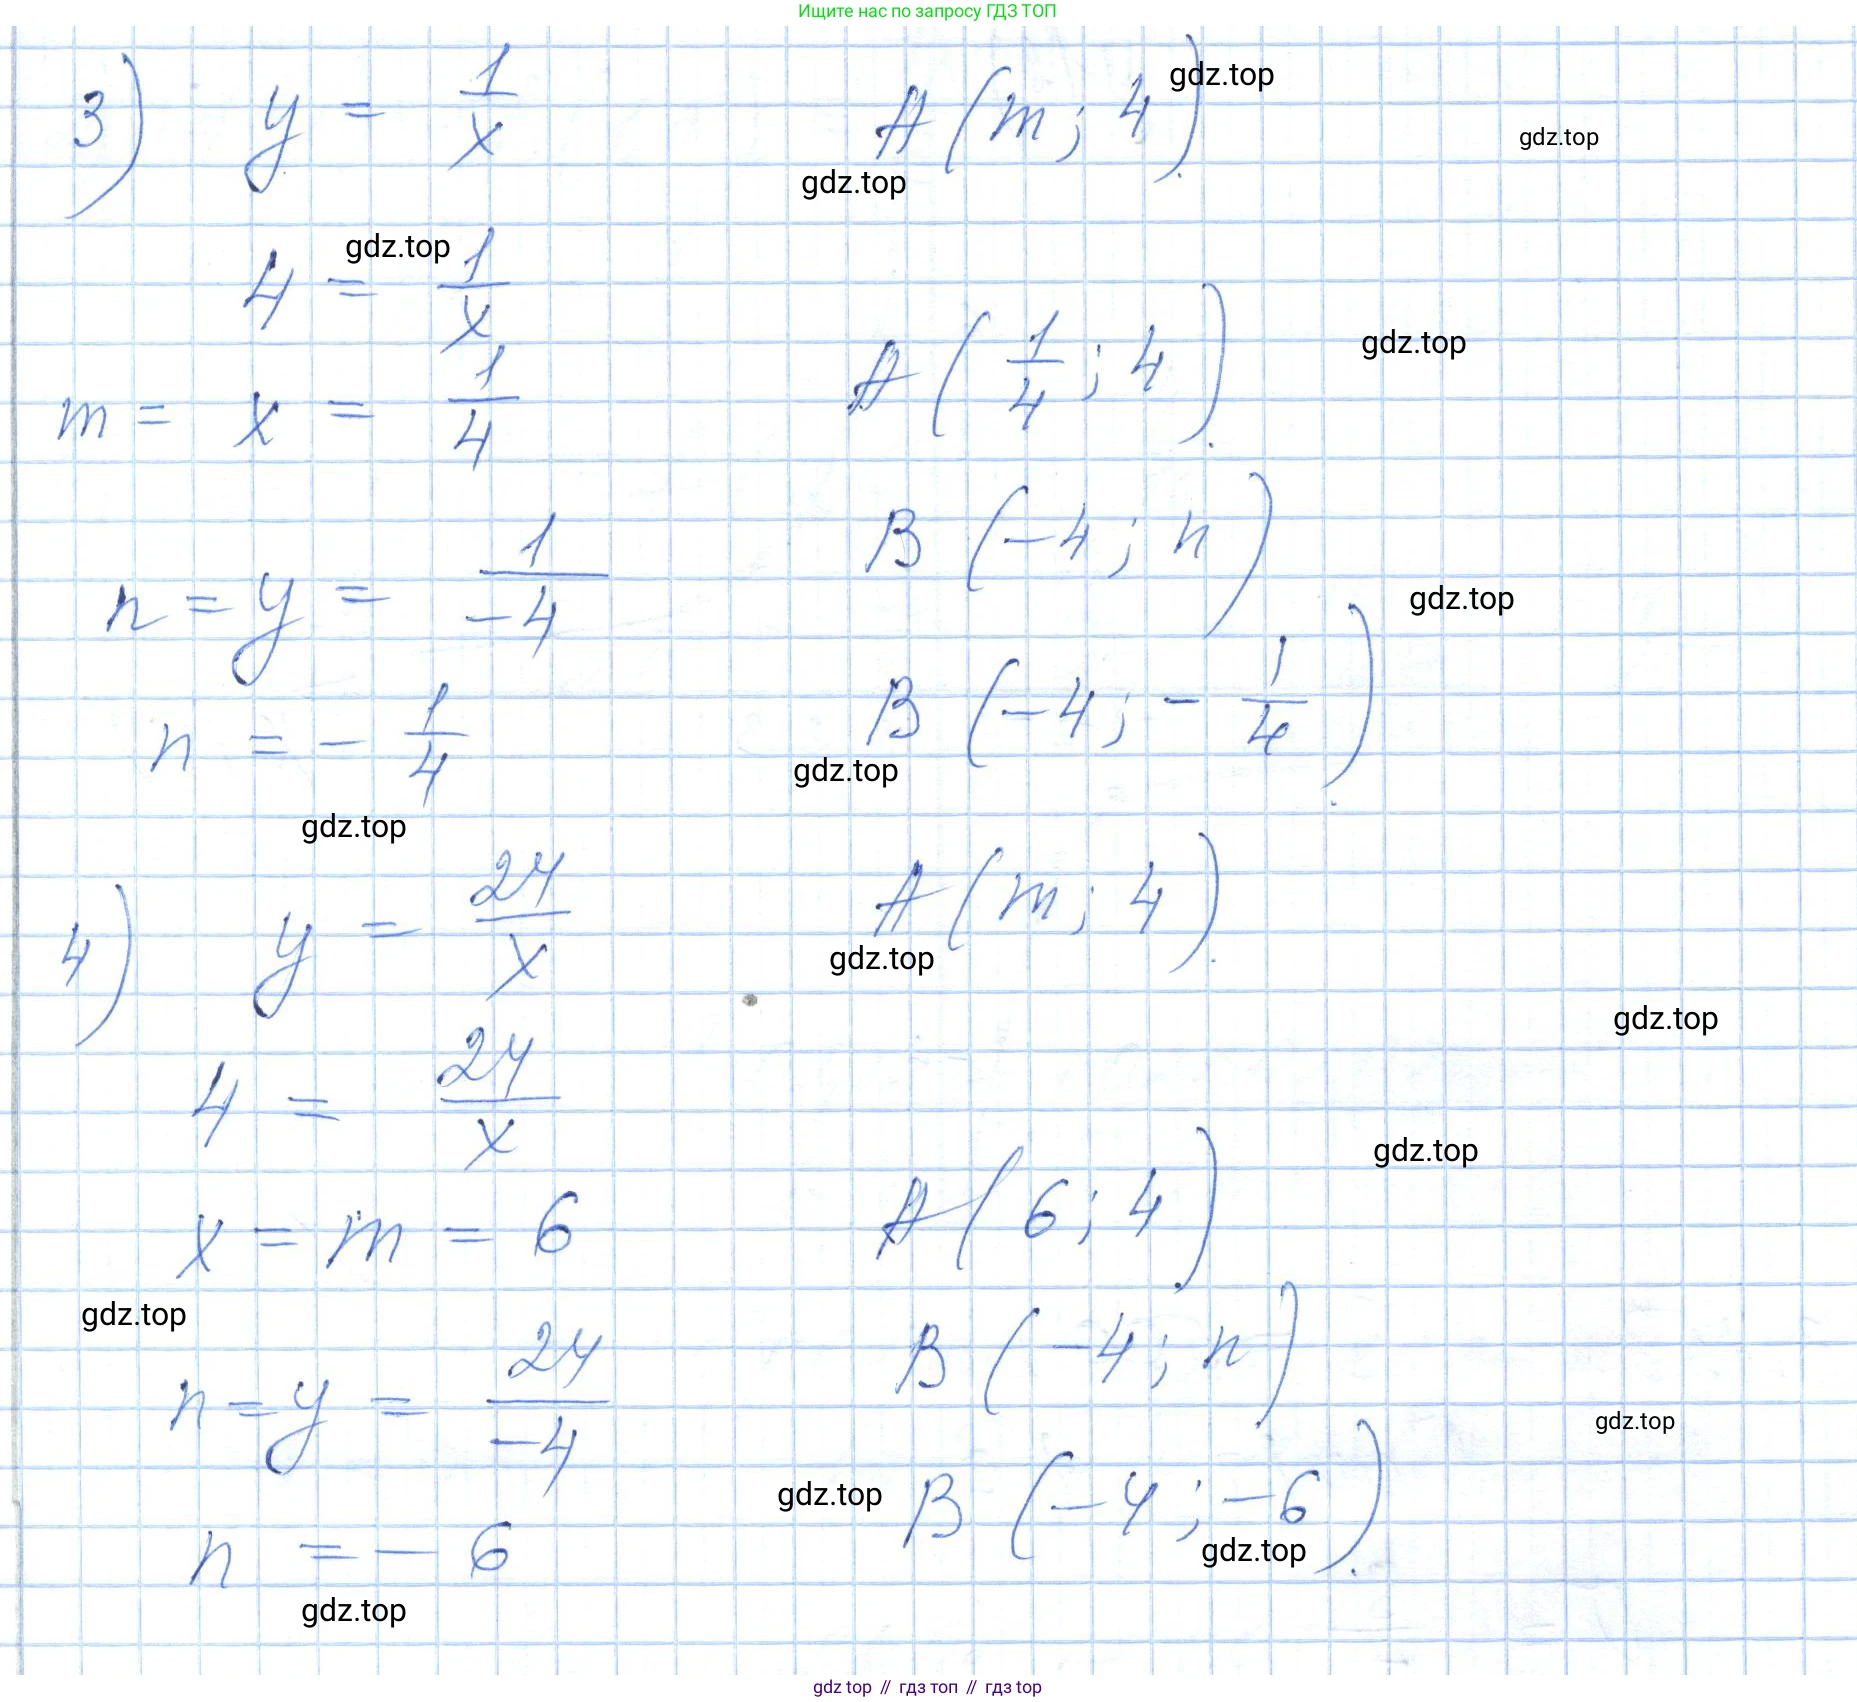 Ищите нас по запросу ГДЗ ТОП
3) y = 1/x A(m; 4).
gdz.top
gdz.top
gdz.top
4 = 1/x
gdz.top
m = x = 1/4 A(1/4; 4).
gdz.top
B(-4; n)
n = y = 1/-4
gdz.top
n = -1/4 B(-4; -1/4).
gdz.top
gdz.top
4) y = 24/x A(m; 4).
gdz.top
gdz.top
4 = 24/x
gdz.top
x = m = 6 A(6; 4)
gdz.top
B(-4; n)
n = y = 24/-4
gdz.top
gdz.top
B(-4; -6).
gdz.top
n = -6
gdz.top
gdz top // гдз топ // гдз top